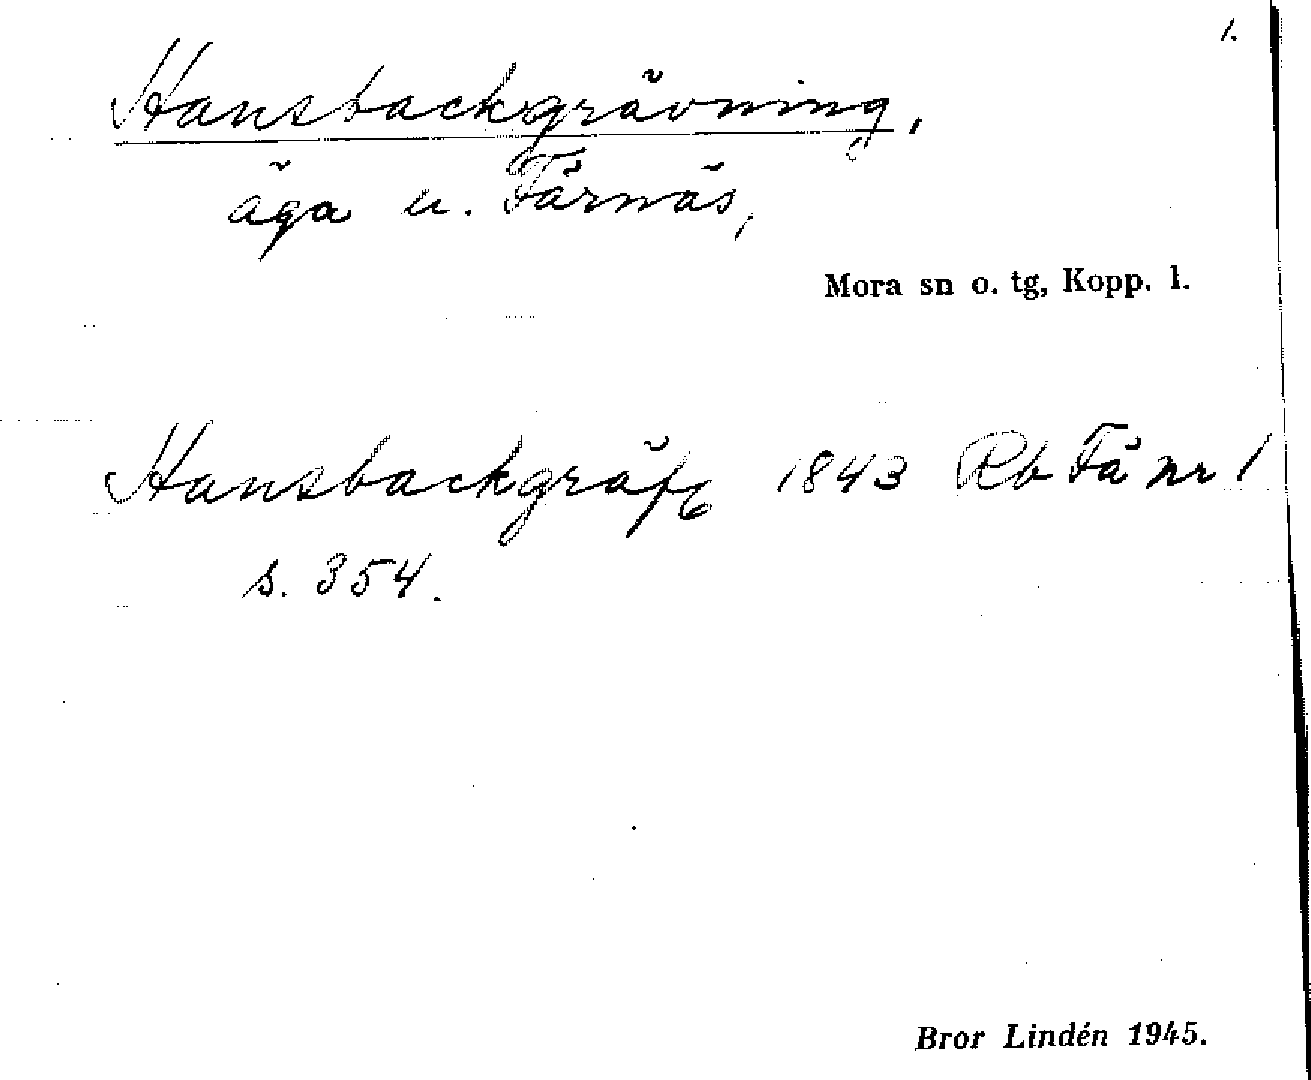 1.
Hansbackgrävning,
äga u. Färnäs,
Mora sn o. tg, Kopp. l.
Hansbackgräfg 1843 Rb Fä nr 1
s. 354.
Bror Lindén 1945.